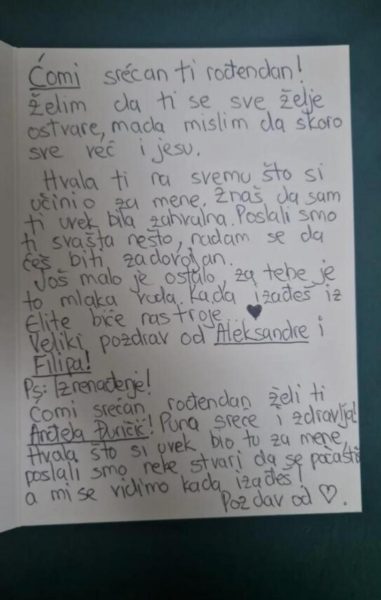 Ćomi srećan ti rođendan!
želim da ti se sve želje
ostvare, mada mislim da skoro
sve već i jesu.
Hvala ti na svemu što si
učinio za mene. Znaš da sam
ti uvek bila zahvalna. Poslali smo
ti svašta nešto, nadam se da
ćeš biti zadovoljan.
Još malo je ostalo, za tebe je
to mlaka voda. Kada izađeš iz
Elite biće nas troje ♥
Veliki pozdrav od Aleksandre i
Filipa!
Ps: Iznenađenje!
Ćomi srećan rođendan želi ti
Anđela Đuričić! Puna sreće i zdravlja!
Hvala što si uvek bio tu za mene,
poslali smo neke stvari da se počastiš
a mi se vidimo kada izađeš!
Pozdav od ♡.